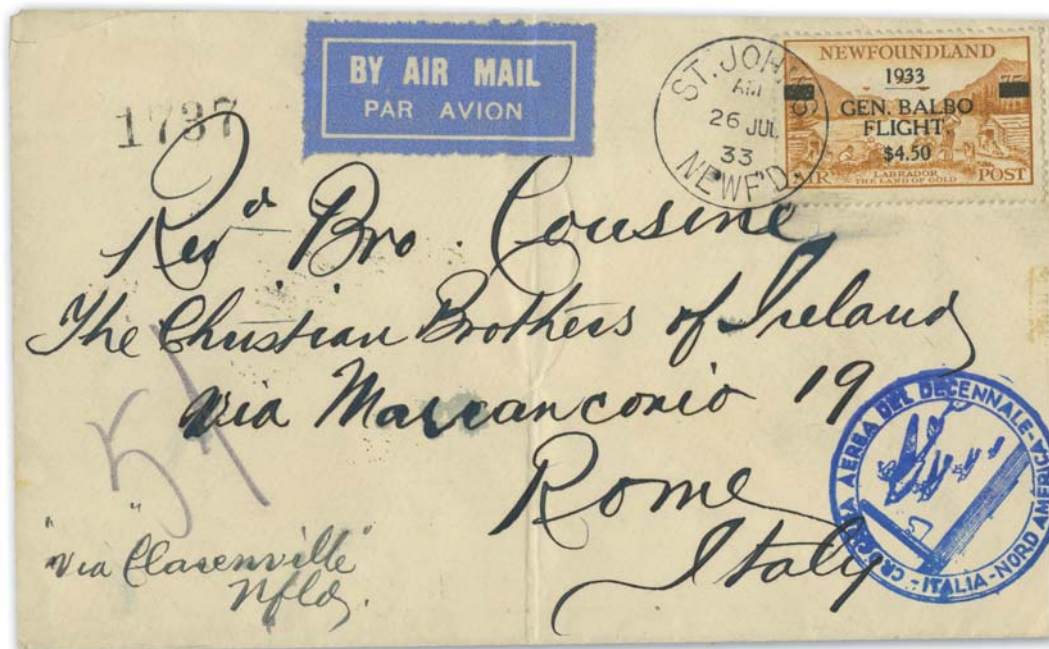 BY AIR MAIL
PAR AVION
1737
ST. JOHN'S
AM
26 JUL
33
NEWF'D.
NEWFOUNDLAND
1933
75 75
GEN. BALBO
FLIGHT
$4.50
LABRADOR
THE LAND OF GOLD
AIR POST
Revd Bro. Cousine
The Christian Brothers of Ireland
via Marcanconio 19
Rome
Italy
51
"via Clarenville"
Nfld.
CROCIERA AEREA DEL DECENNALE - ITALIA-NORD AMERICA